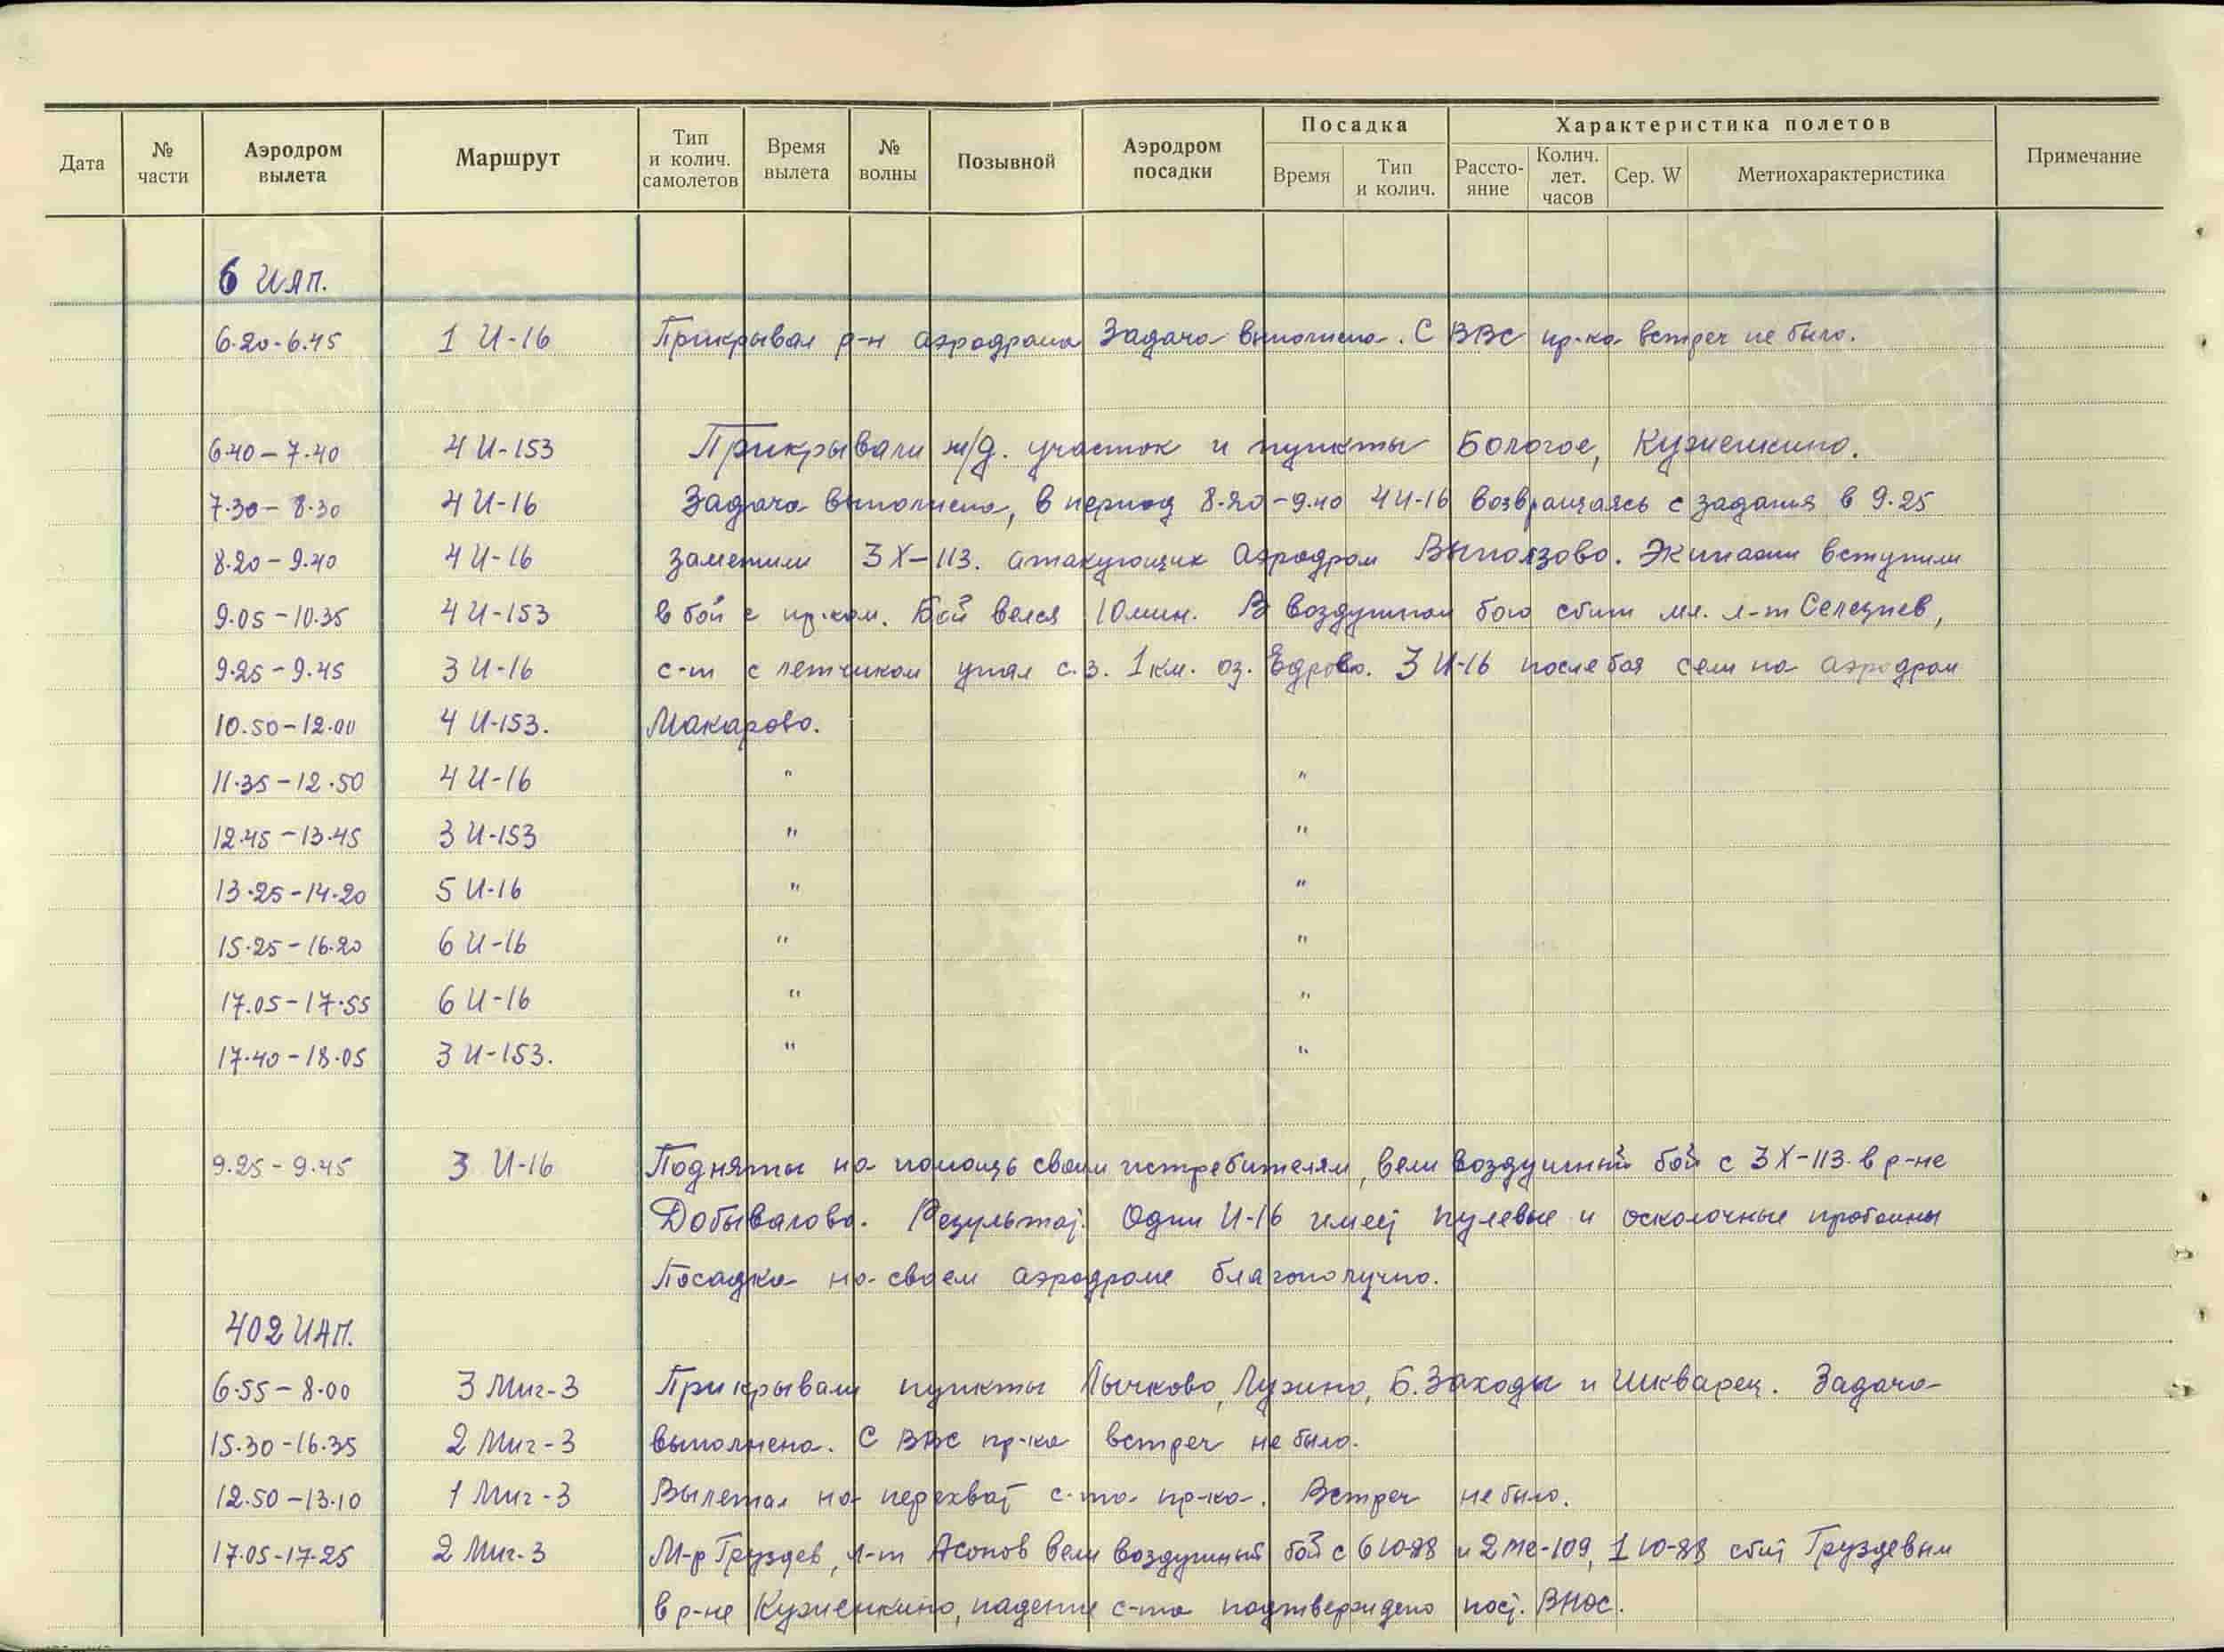 Дата № части Аэродром вылета Маршрут Тип и колич. самолетов Время вылета № волны Позывной Аэродром посадки Посадка Время Тип и колич. Характеристика полетов Рассто-яние Колич. лет. часов Сер. W Метиохарактеристика Примечание
6 ИАП.
6.20-6.45 1 И-16 Прикрывал р-н аэродрома Задача выполнена. С ВВС пр-ка встреч не было.
6.40-7.40 4 И-153 Прикрывали ж/д. участок и пункты Бологое, Куженкино.
7.30-8.30 4 И-16 Задача выполнена, в период 8.20-9.40 4 И-16 возвращаясь с задания в 9.25
8.20-9.40 4 И-16 заметили 3 Х-113. атакующих аэродром Выползово. Экипажи вступили
9.05-10.35 4 И-153 в бой с пр-ком. Бой велся 10 мин. В воздушном бою сбит мл. л-т Селезнев,
9.25-9.45 3 И-16 с-т с летчиком упал с.з. 1 км. оз. Едрово. 3 И-16 после боя сели на аэродром
10.50-12.00 4 И-153. Макарово.
11.35-12.50 4 И-16 " "
12.45-13.45 3 И-153 " "
13.25-14.20 5 И-16 " "
15.25-16.20 6 И-16 " "
17.05-17.55 6 И-16 " "
17.40-18.05 3 И-153. " "
9.25-9.45 3 И-16 Подняты на помощь своим истребителям, вели воздушный бой с 3 Х-113 в р-не
Добывалово. Результат. Один И-16 имеет пулевые и осколочные пробоины
Посадка на своем аэродроме благополучно.
402 ИАП.
6.55-8.00 3 Миг-3 Прикрывали пункты Лычково, Лужино, Б. Заходы и Шкварец. Задача
15.30-16.35 2 Миг-3 выполнена. С ВВС пр-ка встреч не было.
12.50-13.10 1 Миг-3 Вылетал на перехват с-та пр-ка. Встреч не было.
17.05-17.25 2 Миг-3 М-р Груздев, л-т Асонов вели воздушный бой с 6 Ю-88 и 2 Ме-109, 1 Ю-88 сбит Груздевым
в р-не Куженкино, падение с-та подтверждено пост. ВНОС.